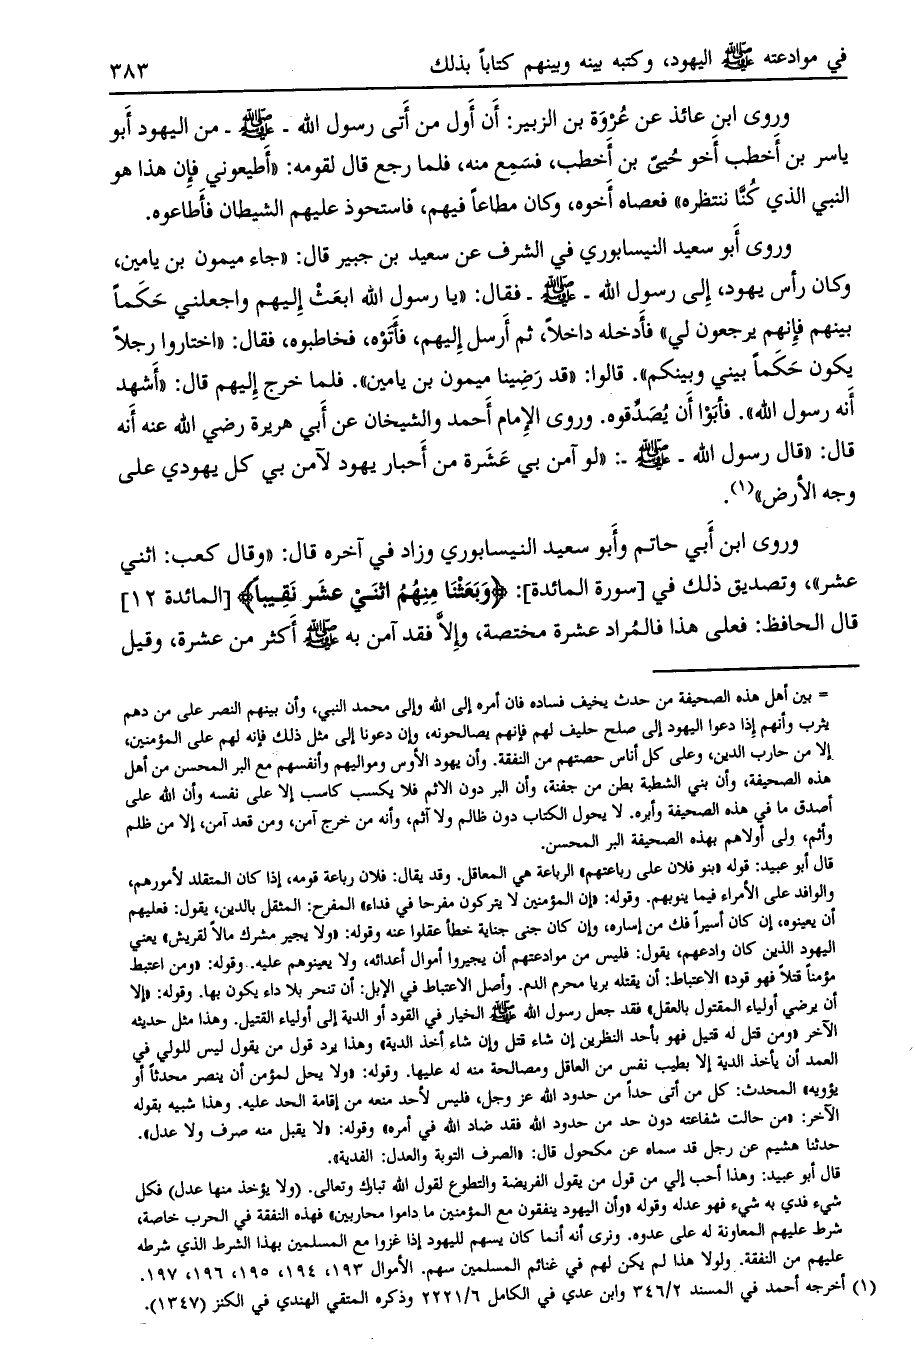 في موادعته ﷺ اليهود، وكتبه بينه وبينهم كتاباً بذلك ٣٨٣
وروى ابن عائذ عن عُرْوَة بن الزبير: أَن أَول من أَتى رسول الله ـ ﷺ ـ من اليهود أَبو
ياسر بن أَخطب أَخو حُييّ بن أَخطب، فسَمِع منه، فلما رجع قال لقومه: «أَطيعوني فإِن هذا هو
النبي الذي كُنَّا ننتظره» فعصاه أَخوه، وكان مطاعاً فيهم، فاستحوذ عليهم الشيطان فأَطاعوه.
وروى أَبو سعيد النيسابوري في الشرف عن سعيد بن جبير قال: «جاء ميمون بن يامين،
وكان رأس يهود، إِلى رسول الله ـ ﷺ ـ فقال: «يا رسول الله ابعَثْ إِليهم واجعلني حَكَماً
بينهم فإِنهم يرجعون لي» فأَدخله داخلاً، ثم أَرسل إِليهم، فأَتَوْه، فخاطبوه، فقال: «اختاروا رجلاً
يكون حَكَماً بيني وبينكم». قالوا: «قد رَضِينا ميمون بن يامين». فلما خرج إِليهم قال: «أَشهد
أَنه رسول الله». فأَبَوْا أَن يُصَدِّقوه. وروى الإِمام أَحمد والشيخان عن أَبي هريرة رضي الله عنه أَنه
قال: «قال رسول الله ـ ﷺ ـ: «لو آمن بي عَشَرة من أَحبار يهود لآمن بي كل يهودي على
وجه الأرض»(١).
وروى ابن أَبي حاتم وأَبو سعيد النيسابوري وزاد في آخره قال: «وقال كعب: اثني
عشر»، وتصديق ذلك في [سورة المائدة]: ﴿وَبَعَثْنَا مِنْهُمُ اثْنَيْ عشَر نَقِيباً﴾ [المائدة ١٢]
قال الحافظ: فعلى هذا فالمُراد عشرة مختصة، وإِلاَّ فقد آمن به ﷺ أَكثر من عشرة، وقيل
= بين أهل هذه الصحيفة من حدث يخيف فساده فان أمره إلى الله وإلى محمد النبي، وأن بينهم النصر على من دهم
يثرب وأنهم إذا دعوا اليهود إلى صلح حليف لهم فإنهم يصالحونه، وإن دعونا إلى مثل ذلك فإنه لهم على المؤمنين،
إلا من حارب الدين، وعلى كل أناس حصتهم من النفقة. وأن يهود الأوس ومواليهم وأنفسهم مع البر المحسن من أهل
هذه الصحيفة، وأن بني الشطبة بطن من جفنة، وأن البر دون الاثم فلا يكسب كاسب إلا على نفسه وأن الله على
أصدق ما في هذه الصحيفة وأبره. لا يحول الكتاب دون ظالم ولا آثم، وأنه من خرج آمن، ومن قعد آمن، إلا من ظلم
وأثم، ولى أولاهم بهذه الصحيفة البر المحسن.
قال أبو عبيد: قوله «بنو فلان على رباعتهم» الرباعة هي المعاقل. وقد يقال: فلان رباعة قومه، إذا كان المتقلد لأمورهم،
والوافد على الأمراء فيما ينوبهم. وقوله: «إن المؤمنين لا يتركون مفرحا في فداء» المفرح: المثقل بالدين، يقول: فعليهم
أن يعينوه، إن كان أسيراً فك من إساره، وإن كان جنى جناية خطأ عقلوا عنه وقوله: «ولا يجير مشرك مالاً لقريش» يعني
اليهود الذين كان وادعهم، يقول: فليس من موادعتهم أن يجيروا أموال أعدائه، ولا يعينوهم عليه. وقوله: «ومن اعتبط
مؤمناً قتلاً فهو قود» الاعتباط: أن يقتله بريا محرم الدم. وأصل الاعتباط في الإبل: أن تنحر بلا داء يكون بها. وقوله: «إلا
أن يرضي أولياء المقتول بالعقل» فقد جعل رسول الله ﷺ الخيار في القود أو الدية إلى أولياء القتيل. وهذا مثل حديثه
الآخر «ومن قتل له قتيل فهو بأحد النظرين إن شاء قتل وإن شاء أخذ الدية» وهذا يرد قول من يقول ليس للولي في
العمد أن يأخذ الدية إلا بطيب نفس من العاقل ومصالحة منه له عليها. وقوله: «ولا يحل لمؤمن أن ينصر محدثاً أو
يؤويه» المحدث: كل من أتى حداً من حدود الله عز وجل، فليس لأحد منعه من إقامة الحد عليه. وهذا شبيه بقوله
الآخر: «من حالت شفاعته دون حد من حدود الله فقد ضاد الله في أمره» وقوله: «لا يقبل منه صرف ولا عدل».
حدثنا هشيم عن رجل قد سماه عن مكحول قال: «الصرف التوبة والعدل: الفدية».
قال أبو عبيد: وهذا أحب إلي من قول من يقول الفريضة والتطوع لقول الله تبارك وتعالى. (ولا يؤخذ منها عدل) فكل
شيء فدي به شيء فهو عدله وقوله «وأن اليهود ينفقون مع المؤمنين ما داموا محاربين» فهذه النفقة في الحرب خاصة،
شرط عليهم المعاونة له على عدوه. ونرى أنه أنما كان يسهم لليهود إذا غزوا مع المسلمين بهذا الشرط الذي شرطه
عليهم من النفقة. ولولا هذا لم يكن لهم في غنائم المسلمين سهم. الأموال ١٩٣، ١٩٤، ١٩٥، ١٩٦، ١٩٧.
(١) أخرجه أحمد في المسند ٣٤٦/٢ وابن عدي في الكامل ٢٢٢١/٦ وذكره المتقي الهندي في الكنز (١٣٤٧).